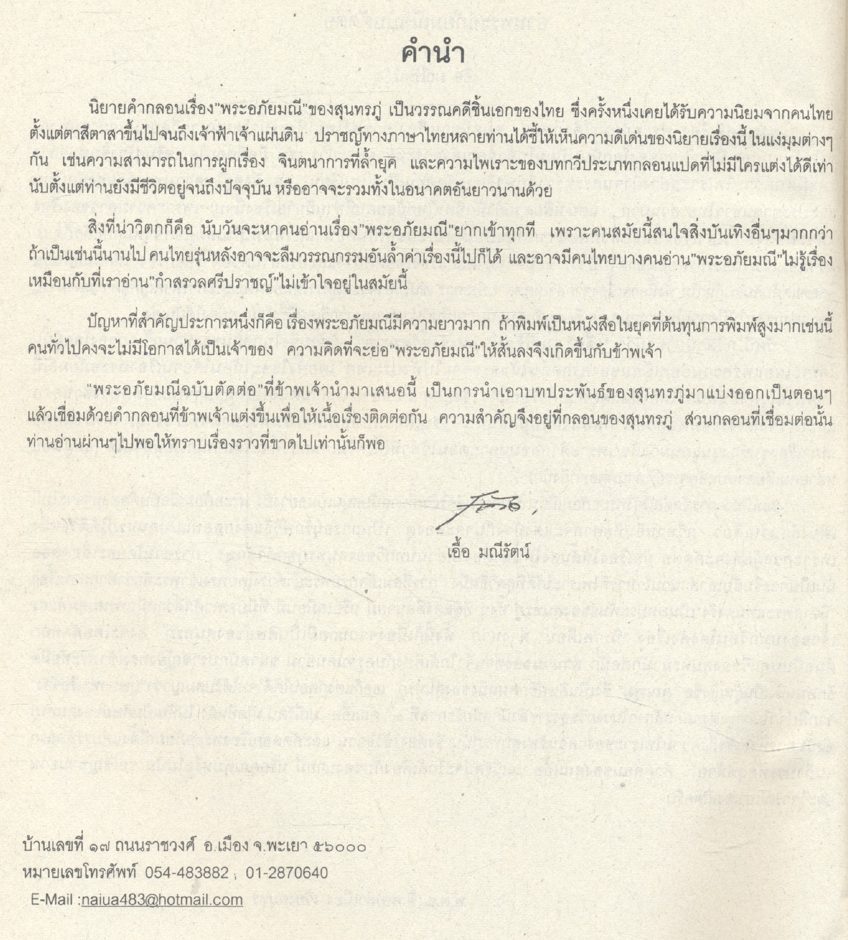 คำนำ
นิยายคำกลอนเรื่อง"พระอภัยมณี"ของสุนทรภู่ เป็นวรรณคดีชิ้นเอกของไทย ซึ่งครั้งหนึ่งเคยได้รับความนิยมจากคนไทย
ตั้งแต่ตาสีตาสาขึ้นไปจนถึงเจ้าฟ้าเจ้าแผ่นดิน ปราชญ์ทางภาษาไทยหลายท่านได้ชี้ให้เห็นความดีเด่นของนิยายเรื่องนี้ในแง่มุมต่างๆ
กัน เช่นความสามารถในการผูกเรื่อง จินตนาการที่ล้ำยุค และความไพเราะของบทกวีประเภทกลอนแปดที่ไม่มีใครแต่งได้ดีเท่า
นับตั้งแต่ท่านยังมีชีวิตอยู่จนถึงปัจจุบัน หรืออาจจะรวมทั้งในอนาคตอันยาวนานด้วย
สิ่งที่น่าวิตกก็คือ นับวันจะหาคนอ่านเรื่อง"พระอภัยมณี"ยากเข้าทุกที เพราะคนสมัยนี้สนใจสิ่งบันเทิงอื่นๆมากกว่า
ถ้าเป็นเช่นนี้นานไป คนไทยรุ่นหลังอาจจะลืมวรรณกรรมอันล้ำค่าเรื่องนี้ไปก็ได้ และอาจมีคนไทยบางคนอ่าน"พระอภัยมณี"ไม่รู้เรื่อง
เหมือนกับที่เราอ่าน"กำสรวลศรีปราชญ์"ไม่เข้าใจอยู่ในสมัยนี้
ปัญหาที่สำคัญประการหนึ่งก็คือ เรื่องพระอภัยมณีมีความยาวมาก ถ้าพิมพ์เป็นหนังสือในยุคที่ต้นทุนการพิมพ์สูงมากเช่นนี้
คนทั่วไปคงจะไม่มีโอกาสได้เป็นเจ้าของ ความคิดที่จะย่อ"พระอภัยมณี"ให้สั้นลงจึงเกิดขึ้นกับข้าพเจ้า
"พระอภัยมณีฉบับตัดต่อ"ที่ข้าพเจ้านำมาเสนอนี้ เป็นการนำเอาบทประพันธ์ของสุนทรภู่มาแบ่งออกเป็นตอนๆ
แล้วเชื่อมด้วยคำกลอนที่ข้าพเจ้าแต่งขึ้นเพื่อให้เนื้อเรื่องติดต่อกัน ความสำคัญจึงอยู่ที่กลอนของสุนทรภู่ ส่วนกลอนที่เชื่อมต่อนั้น
ท่านอ่านผ่านๆไปพอให้ทราบเรื่องราวที่ขาดไปเท่านั้นก็พอ
เอื้อ มณีรัตน์
บ้านเลขที่ ๑๗ ถนนราชวงศ์ อ.เมือง จ.พะเยา ๕๖๐๐๐
หมายเลขโทรศัพท์ 054-483882 , 01-2870640
E-Mail :naiua483@hotmail.com